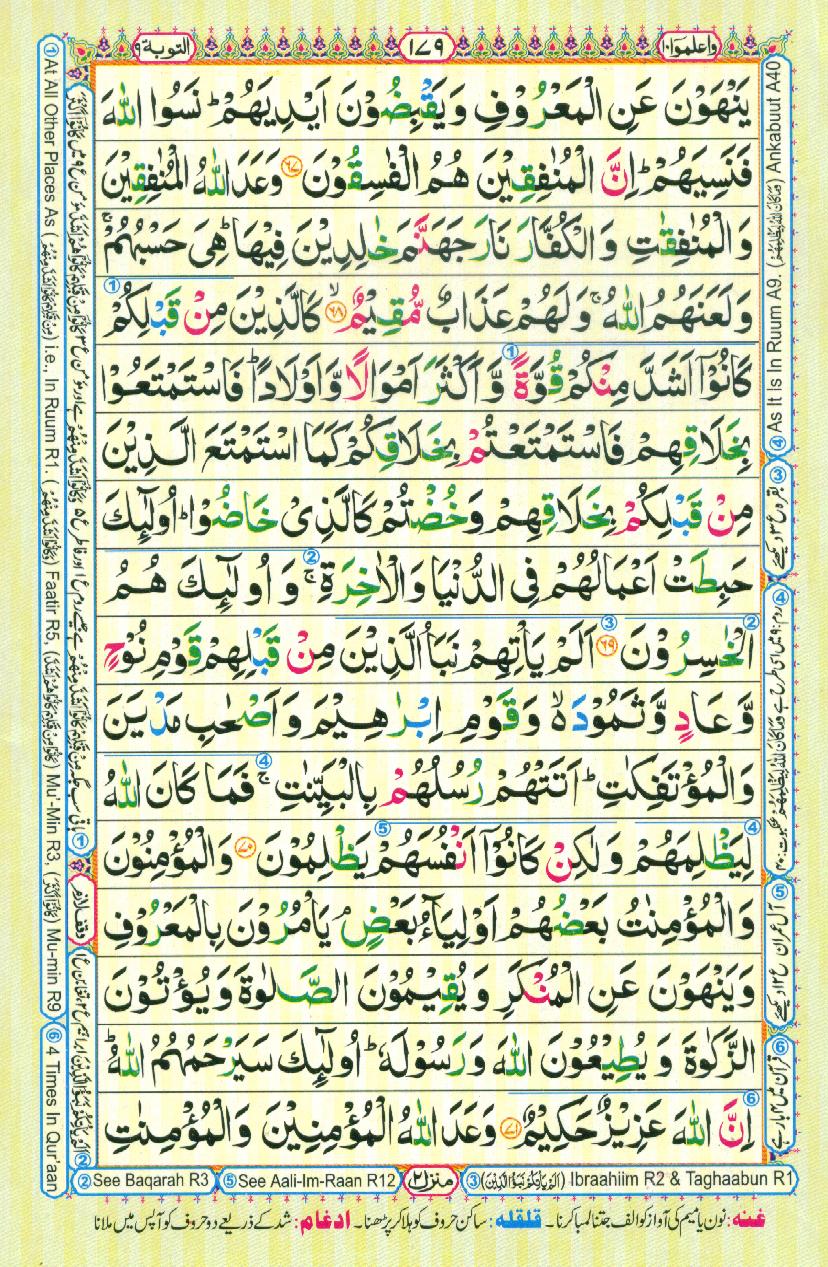 التوبة ٩
١٧٩
واعلموا ١٠
يَنْهَوْنَ عَنِ الْمَعْرُوْفِ وَيَقْبِضُوْنَ اَيْدِيَهُمْ ؕ نَسُوا اللّٰهَ
فَنَسِيَهُمْ ؕ اِنَّ الْمُنٰفِقِيْنَ هُمُ الْفٰسِقُوْنَ ﴿۶۷﴾ وَعَدَ اللّٰهُ الْمُنٰفِقِيْنَ
وَالْمُنٰفِقٰتِ وَالْكُفَّارَ نَارَ جَهَنَّمَ خٰلِدِيْنَ فِيْهَا ؕ هِىَ حَسْبُهُمْ ۚ
وَلَعَنَهُمُ اللّٰهُ ۚ وَلَهُمْ عَذَابٌ مُّقِيْمٌ ۙ﴿۶۸﴾ كَالَّذِيْنَ مِنْ قَبْلِكُمْ ①
كَانُوْۤا اَشَدَّ مِنْكُمْ قُوَّةً ① وَّاَكْثَرَ اَمْوَالًا وَّاَوْلَادًا ؕ فَاسْتَمْتَعُوْا
بِخَلَاقِهِمْ فَاسْتَمْتَعْتُمْ بِخَلَاقِكُمْ كَمَا اسْتَمْتَعَ الَّذِيْنَ
مِنْ قَبْلِكُمْ بِخَلَاقِهِمْ وَخُضْتُمْ كَالَّذِىْ خَاضُوْا ؕ اُولٰٓئِكَ
حَبِطَتْ اَعْمَالُهُمْ فِى الدُّنْيَا وَالْاٰخِرَةِ ② ۚ وَاُولٰٓئِكَ هُمُ
② الْخٰسِرُوْنَ ﴿۶۹﴾ ③ اَلَمْ يَاْتِهِمْ نَبَاُ الَّذِيْنَ مِنْ قَبْلِهِمْ قَوْمِ نُوْحٍ
وَّعَادٍ وَّثَمُوْدَ ۙ وَقَوْمِ اِبْرٰهِيْمَ وَاَصْحٰبِ مَدْيَنَ
وَالْمُؤْتَفِكٰتِ ؕ اَتَتْهُمْ رُسُلُهُمْ بِالْبَيِّنٰتِ ④ ۚ فَمَا كَانَ اللّٰهُ
④ لِيَظْلِمَهُمْ وَلٰكِنْ كَانُوْۤا اَنْفُسَهُمْ ⑤ يَظْلِمُوْنَ ﴿۷۰﴾ وَالْمُؤْمِنُوْنَ
وَالْمُؤْمِنٰتُ بَعْضُهُمْ اَوْلِيَآءُ بَعْضٍ ۘ يَاْمُرُوْنَ بِالْمَعْرُوْفِ
وَيَنْهَوْنَ عَنِ الْمُنْكَرِ وَيُقِيْمُوْنَ الصَّلٰوةَ وَيُؤْتُوْنَ
الزَّكٰوةَ وَيُطِيْعُوْنَ اللّٰهَ وَرَسُوْلَهٗ ؕ اُولٰٓئِكَ سَيَرْحَمُهُمُ اللّٰهُ ؕ
⑥ اِنَّ اللّٰهَ عَزِيْزٌ حَكِيْمٌ ﴿۷۱﴾ وَعَدَ اللّٰهُ الْمُؤْمِنِيْنَ وَالْمُؤْمِنٰتِ
④ As It Is In Ruum A9. (فما كان الله ليظلمهم) Ankabuut A40
③ بقرہ ع ۳ دیکھئے
⑤ آل عمران ع ۱۲ دیکھئے
⑥ قرآن میں ۴ بار ہے
① At All Other Places As i.e., In Ruum R1. Faatir R5, Mu'-Min R3, Mu-min R9
⑥ 4 Times In Qur'aan
وقف لازم
② See Baqarah R3
⑤ See Aali-Im-Raan R12
منزل ٢
③ (الم ياتكم نبؤا الذين) Ibraahiim R2 & Taghaabun R1
غنہ: نون یا میم کی آواز کو الف جتنا لمبا کرنا۔ قلقلہ: ساکن حروف کو ہلا کر پڑھنا۔ ادغام: شد کے ذریعے دو حروف کو آپس میں ملانا